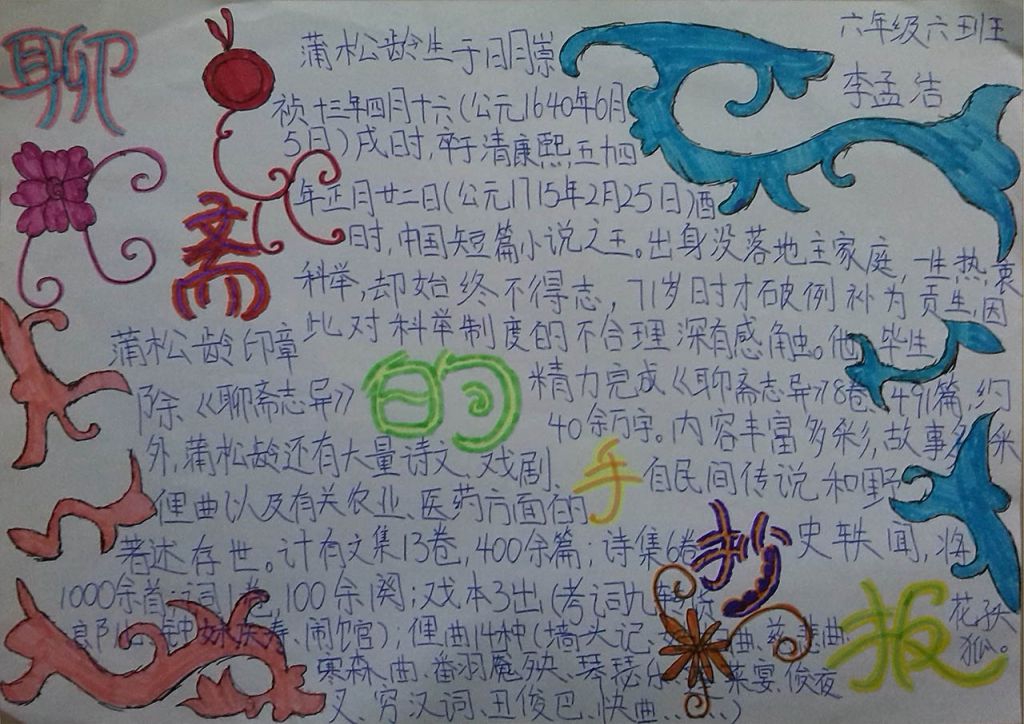 聊
斋
的
手
抄
报
六年级六班王
李孟洁
蒲松龄生于日明崇
祯十三年四月十六(公元1640年6月
5日)戌时,卒于清康熙五十四
年正月廿二日(公元1715年2月25日)酒
时,中国短篇小说之王。出身没落地主家庭,一生热衷
科举,却始终不得志,71岁时才破例补为贡生,因
此对科举制度的不合理深有感触。他毕生
精力完成《聊斋志异》8卷、491篇,约
40余万字。内容丰富多彩,故事多采
自民间传说和野
史轶闻,将
花妖
狐。
蒲松龄印章
除《聊斋志异》
外,蒲松龄还有大量诗文、戏剧、
俚曲以及有关农业、医药方面的
著述存世。计有文集13卷,400余篇;诗集6卷
1000余首;词1卷,100余阕;戏本3出(考词九转
郎 钟妹庆寿、闹馆);俚曲14种(墙头记、 曲、慈悲曲、
寒森曲、翻羽魇殃、琴瑟乐、 莱宴、俊夜
叉、穷汉词、丑俊巴、快曲......)